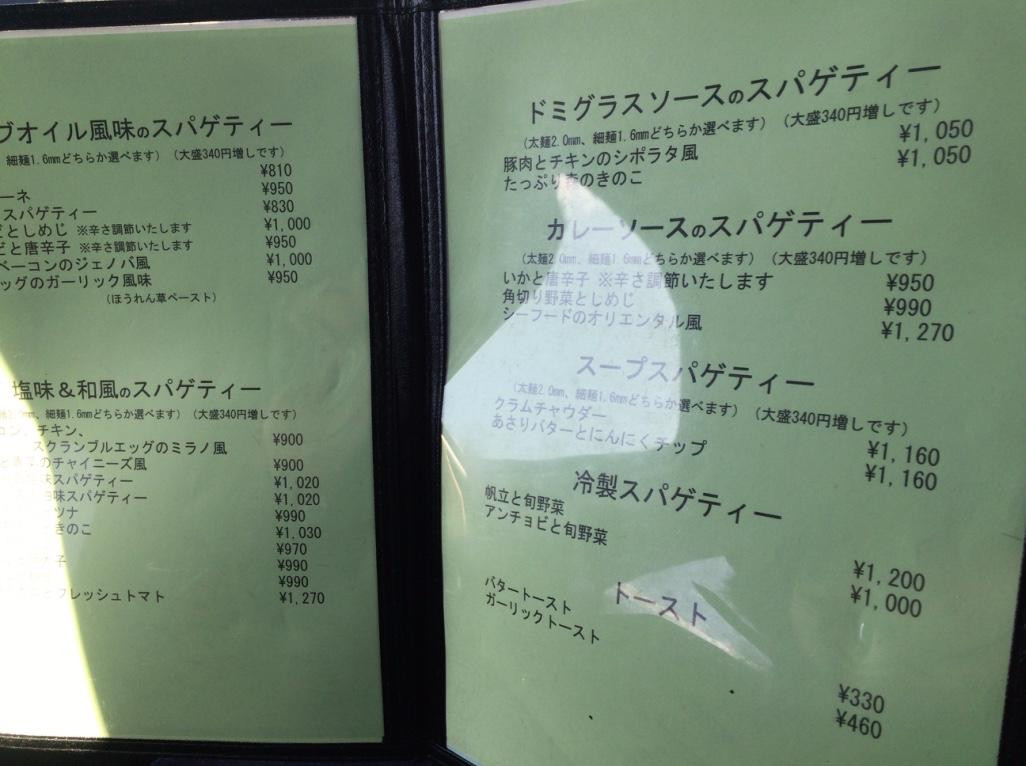 ブオイル風味のスパゲティー
細麺1.6mmどちらか選べます）（大盛340円増しです）
¥810
ーネ ¥950
スパゲティー ¥830
どとしめじ ※辛さ調節いたします ¥1,000
どと唐辛子 ※辛さ調節いたします ¥950
ベーコンのジェノバ風 ¥1,000
ッグのガーリック風味 ¥950
（ほうれん草ペースト）
塩味＆和風のスパゲティー
細麺1.6mmどちらか選べます）（大盛340円増しです）
コン、チキン、
スクランブルエッグのミラノ風 ¥900
のチャイニーズ風 ¥900
味スパゲティー ¥1,020
味スパゲティー ¥1,020
ツナ ¥990
きのこ ¥1,030
¥970
子 ¥990
¥990
フレッシュトマト ¥1,270
ドミグラスソースのスパゲティー
（太麺2.0mm、細麺1.6mmどちらか選べます）（大盛340円増しです）
豚肉とチキンのシポラタ風 ¥1,050
たっぷり森のきのこ ¥1,050
カレーソースのスパゲティー
（太麺2.0mm、細麺1.6mmどちらか選べます）（大盛340円増しです）
いかと唐辛子 ※辛さ調節いたします ¥950
角切り野菜としめじ ¥990
シーフードのオリエンタル風 ¥1,270
スープスパゲティー
（太麺2.0mm、細麺1.6mmどちらか選べます）（大盛340円増しです）
クラムチャウダー ¥1,160
あさりバターとにんにくチップ ¥1,160
冷製スパゲティー
帆立と旬野菜 ¥1,200
アンチョビと旬野菜 ¥1,000
トースト
バタートースト ¥330
ガーリックトースト ¥460